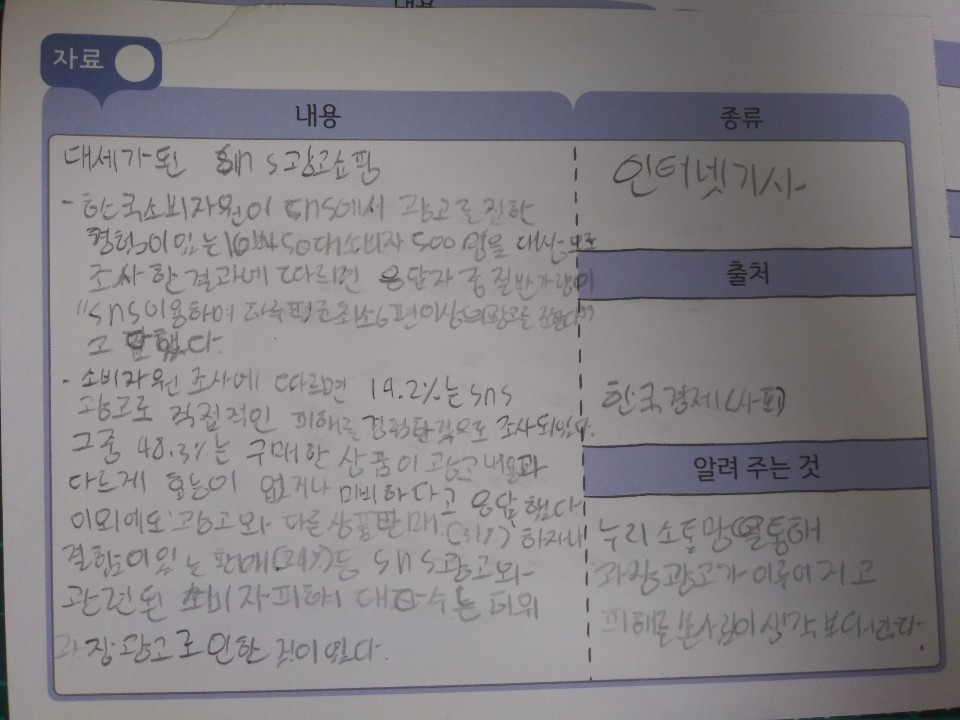 내용
자료
내용
종류
대세가 된 sns광고쇼핑
인터넷기사
- 한국소비자원이 sns에서 광고를 접한
경험이 있는 소비자 500명을 대상으로
조사한 결과에 따르면 응답자 중 절반가량이
출처
"sns이용하며 하루평균최소6편이상의광고를 접한다"
고 답했다.
- 소비자원 조사에 따르면 14.2%는 sns
한국경제(사회)
광고로 직접적인 피해를 경험한적으로 조사되었다.
그중 48.3%는 구매한 상품이 광고내용과
알려 주는 것
다르게 효능이 없거나 미비하다고 응답했다
이외에도 광고와 다른 상품판매(31%) 하자나
누리 소통망을통해
결함이있는 판매(24%)등 sns광고와
과장광고가 이루어지고
관련된 소비자피해 대다수는 허위
피해를 본사람이 생각보다 많다.
과장 광고로 인한 것이 있다.